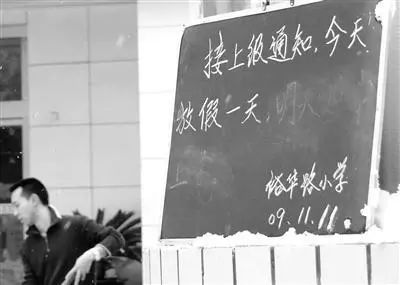 接上级通知，今天
放假一天，明天
裕华路小学
09.11.11